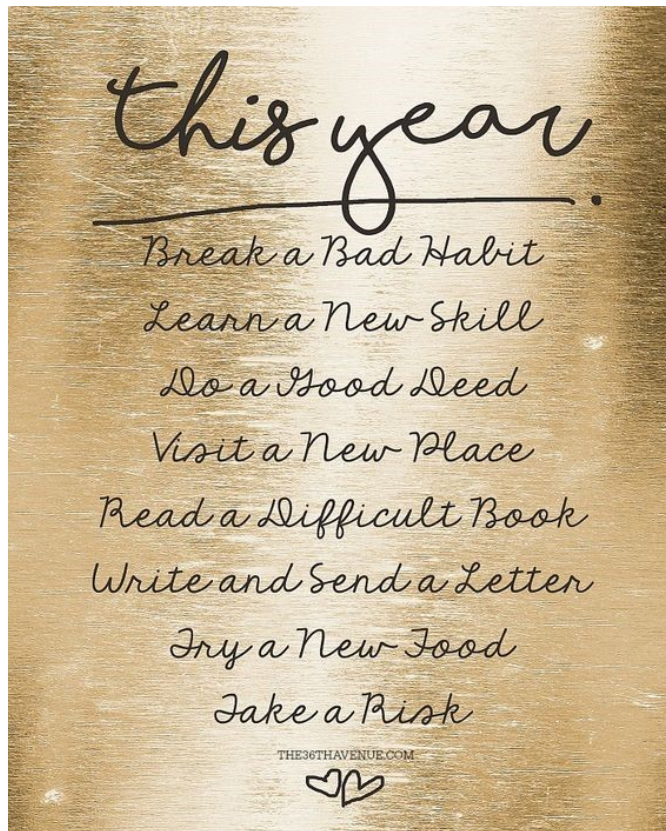 this year.
Break a Bad Habit
Learn a New Skill
Do a Good Deed
Visit a New Place
Read a Difficult Book
Write and Send a Letter
Try a New Food
Take a Risk
THE36THAVENUE.COM